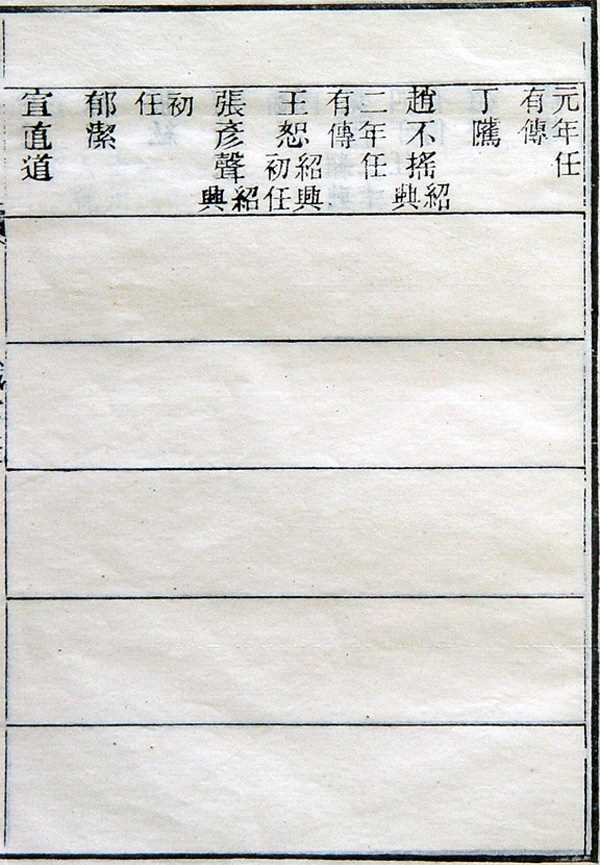 元年任
有傳
丁隲
趙不搖紹興
二年任
有傳
王恕紹興初任
張彥聲紹興
初任
郁潔
宣直道